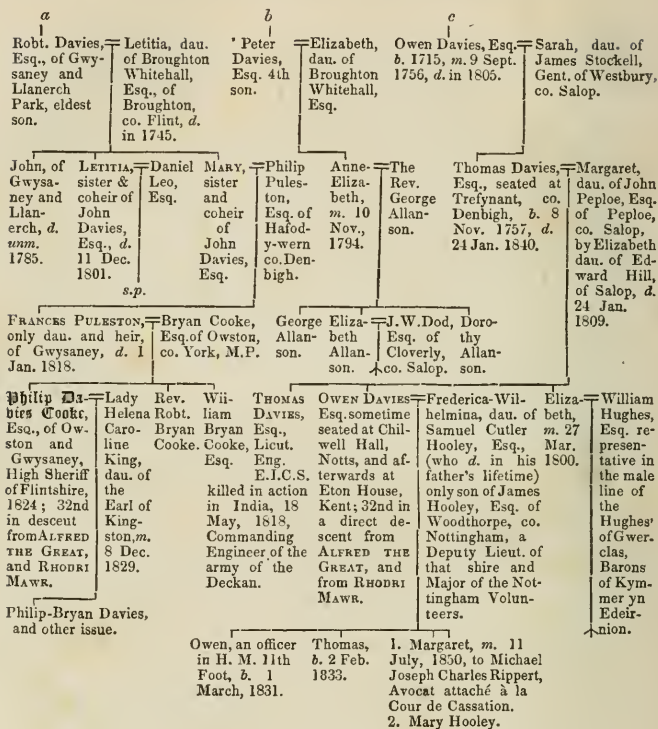 a
Robt. Davies,
Esq., of Gwy-
saney and
Llanerch
Park, eldest
son.
Letitia, dau.
of Broughton
Whitehall,
Esq., of
Broughton,
co. Flint, d.
in 1745.
b
Peter
Davies,
Esq. 4th
son.
Elizabeth,
dau. of
Broughton
Whitehall,
Esq.
c
Owen Davies, Esq.
b. 1715, m. 9 Sept.
1756, d. in 1805.
Sarah, dau. of
James Stockell,
Gent. of Westbury,
co. Salop.
John, of
Gwysa-
ney and
Llan-
erch, d.
unm.
1785.
LETITIA,
sister &
coheir of
John
Davies,
Esq., d.
11 Dec.
1801.
Daniel
Leo,
Esq.
s.p.
MARY,
sister
and
coheir
of
John
Davies,
Esq.
Philip
Pules-
ton,
Esq. of
Hafod-
y-wern
co. Den-
bigh.
Anne-
Eliza-
beth,
m. 10
Nov.,
1794.
The
Rev.
George
Allan-
son.
Thomas Davies,
Esq., seated at
Trefynant, co.
Denbigh, b. 8
Nov. 1757, d.
24 Jan. 1840.
Margaret,
dau. of John
Peploe, Esq.
of Peploe,
co. Salop,
by Elizabeth
dau. of Ed-
ward Hill,
of Salop, d.
24 Jan.
1809.
FRANCES PULESTON,
only dau. and heir,
of Gwysaney, d. 1
Jan. 1818.
Bryan Cooke,
Esq. of Owston,
co. York, M.P.
George
Allan-
son.
Eliza-
beth
Allan-
son.
J.W.Dod,
Esq. of
Cloverly,
co. Salop.
Doro-
thy
Allan-
son.
Philip Da-
vies Cooke,
Esq., of Ow-
ston and
Gwysaney,
High Sheriff
of Flintshire,
1824; 32nd
in descent
from ALFRED
THE GREAT,
and RHODRI
MAWR.
Lady
Helena
Caro-
line
King,
dau. of
the
Earl of
King-
ston, m.
8 Dec.
1829.
Rev.
Robt.
Bryan
Cooke.
Wil-
liam
Bryan
Cooke,
Esq.
THOMAS
DAVIES,
Esq.,
Lieut.
Eng.
E.I.C.S.
killed in action
in India, 18
May, 1818,
Commanding
Engineer of the
army of the
Deckan.
OWEN DAVIES
Esq. sometime
seated at Chil-
well Hall,
Notts, and af-
terwards at
Eton House,
Kent; 32nd in
a direct de-
scent from
ALFRED THE
GREAT, and
from RHODRI
MAWR.
Frederica-Wil-
helmina, dau. of
Samuel Cutler
Hooley, Esq.,
(who d. in his
father's lifetime)
only son of James
Hooley, Esq. of
Woodthorpe, co.
Nottingham, a
Deputy Lieut. of
that shire and
Major of the Not-
tingham Volun-
teers.
Eliza-
beth,
m. 27
Mar.
1800.
William
Hughes,
Esq. re-
presen-
tative in
the male
line of
the
Hughes'
of Gwer-
clas,
Barons
of Kym-
mer yn
Edeir-
nion.
Philip-Bryan Davies,
and other issue.
Owen, an officer
in H. M. 11th
Foot, b. 1
March, 1831.
Thomas,
b. 2 Feb.
1833.
1. Margaret, m. 11
July, 1850, to Michael
Joseph Charles Rippert,
Avocat attaché à la
Cour de Cassation.
2. Mary Hooley.